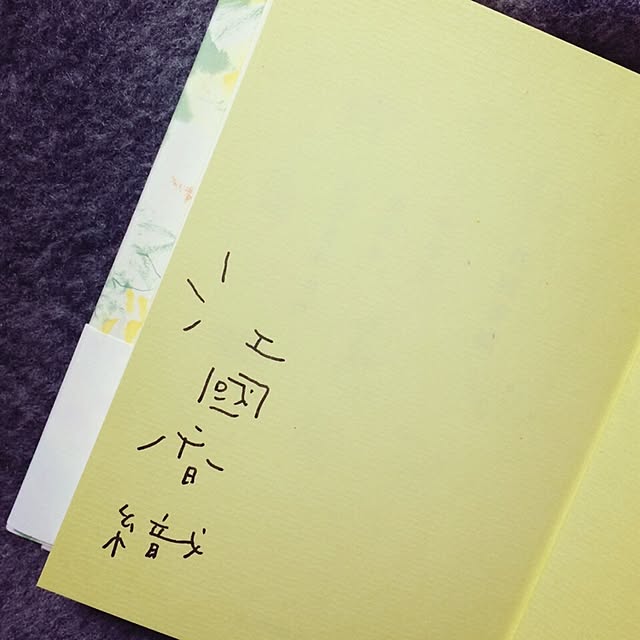 江國香織